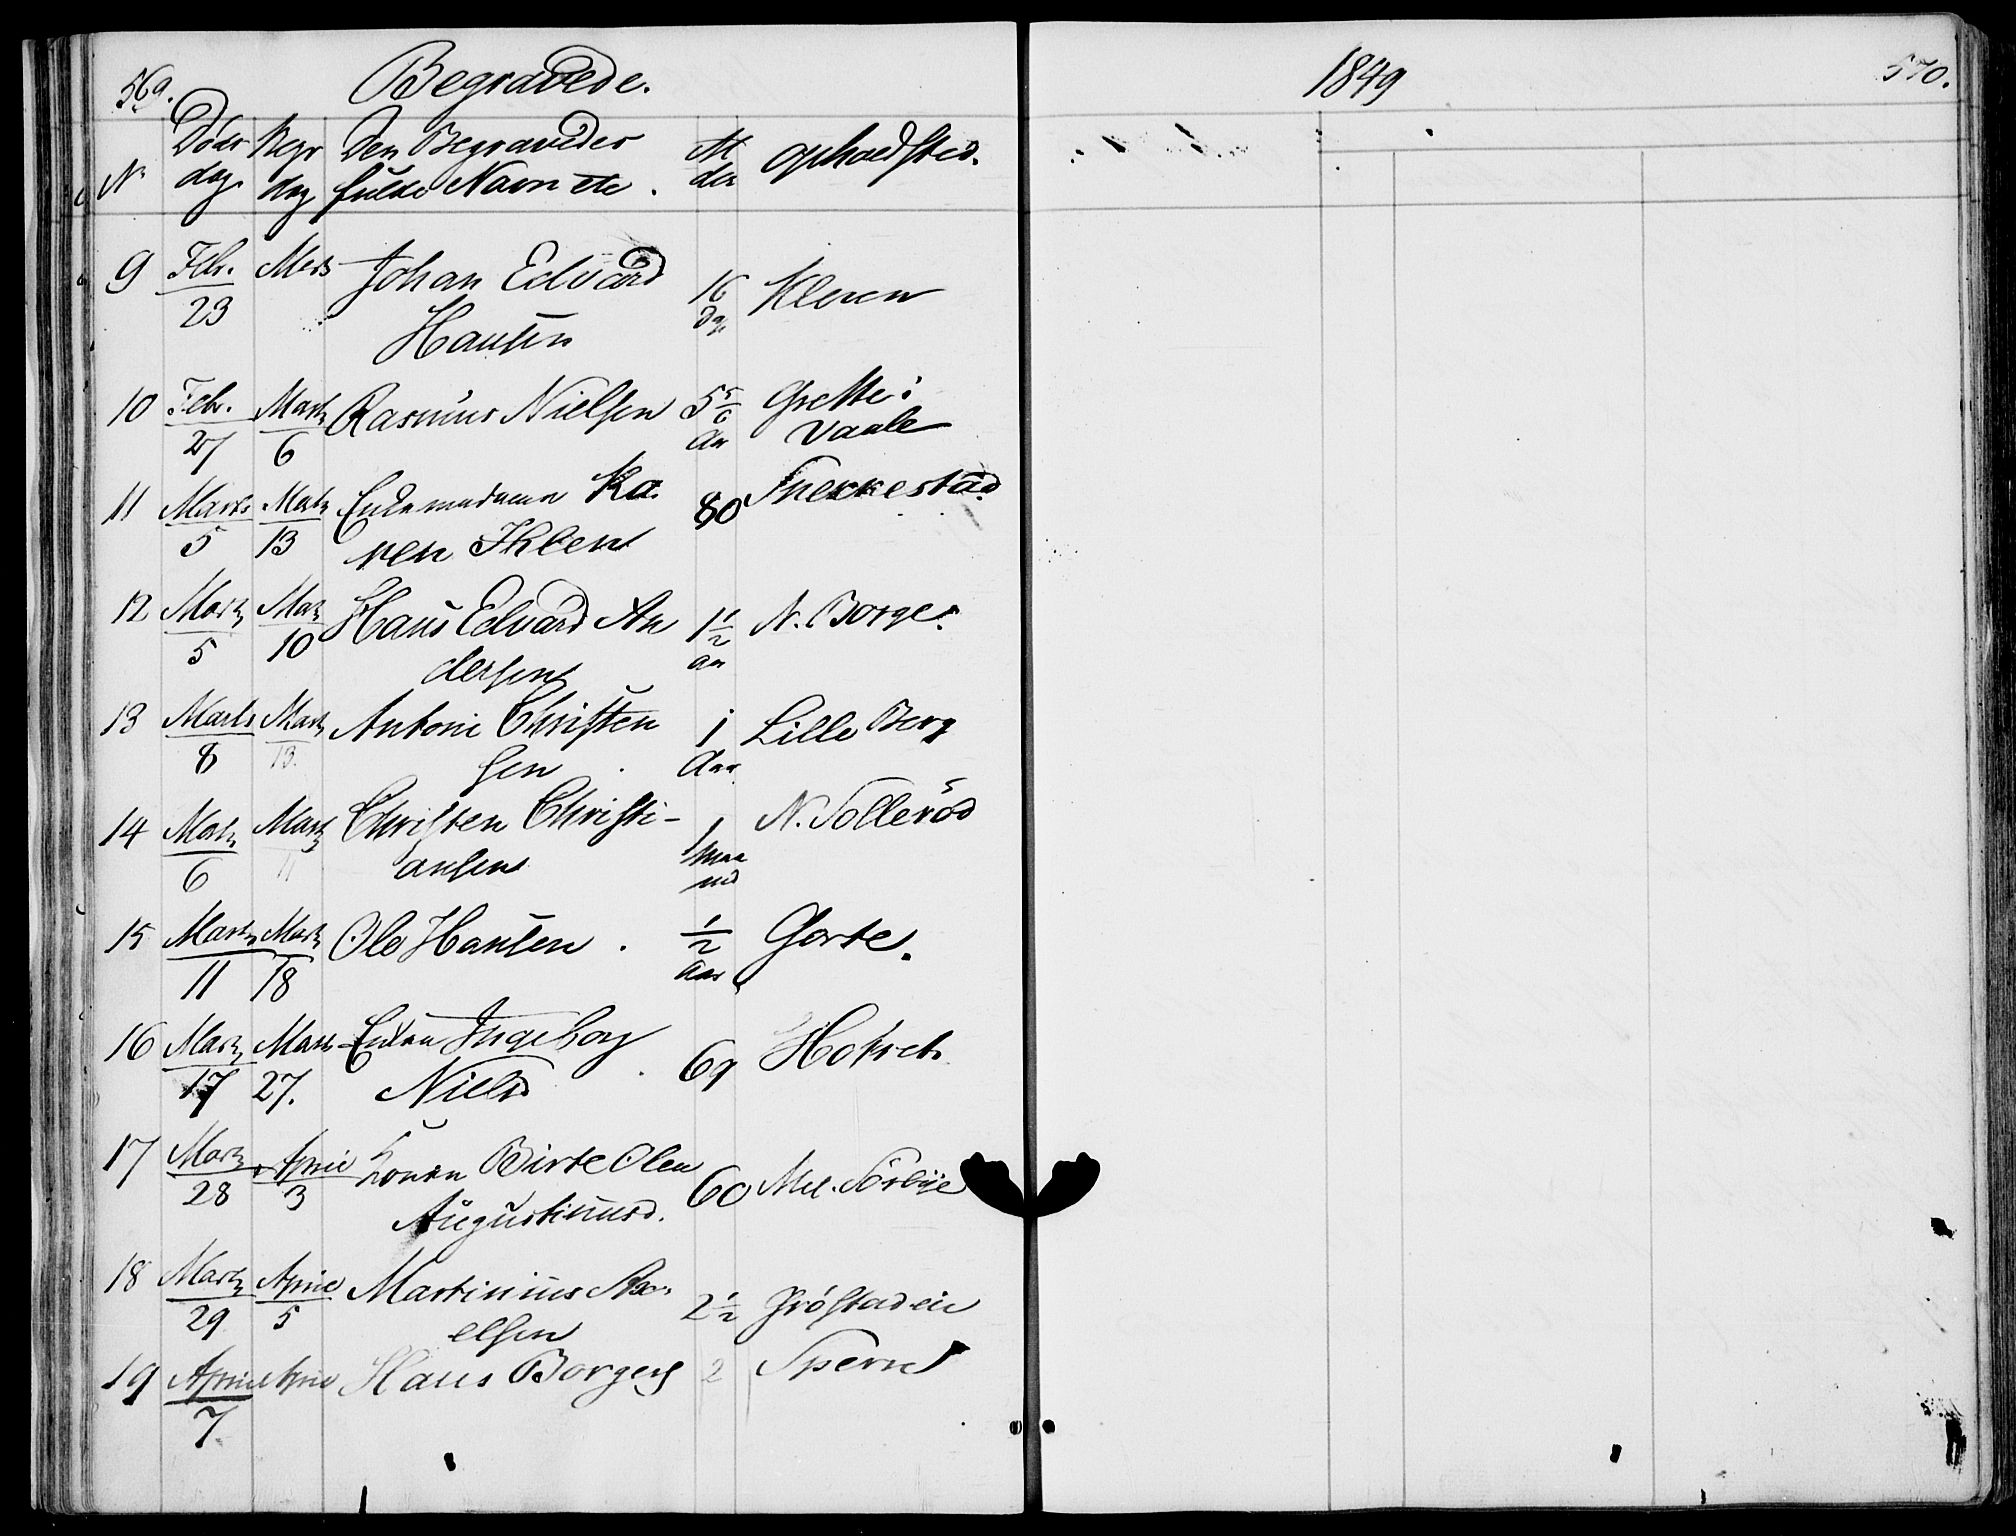 569. Begravede. 1849 570.
No Døds dag. Begr dag Den Begravedes fulde Navn etc. Al der Opholdsted.
9 Febr. 23 Mars Johan Edvard 16 Dg.
Hansen
10 Febr. 27 Marts 6 Rasmus Nielsen 5 5/6 Aar Grette i
Vaale
11 Marts 5 Marts 13 Enkemadame Ka 80 Snekkestad
ren Ihlen
12 Marts 5 Mar 10 Hans Edvard An 1 1/2 aar N. Borge.
dersen
13 Marts 8 Marts 13. Antoni Christen 1 Aar Lille Berg
sen
14 Marts 6 Marts 11 Christen Christi- 1 Maa ned N. Sollerød
ansen
15 Marts 11 Marts 18 Ole Hansen . 1/2 Aar Gorte.
16 Marts 17 Marts 27. Enken Ingeborg 69
Nielsd
17 Marts 28 April 3 Konen Birte Olea 60 Mel. Sørbye
Augustinusd.
18 Marts 29 April 5 Martinius Ax 2 1/2 Grøstadeie
elsen
19 April 7 April Hans Borgers 2